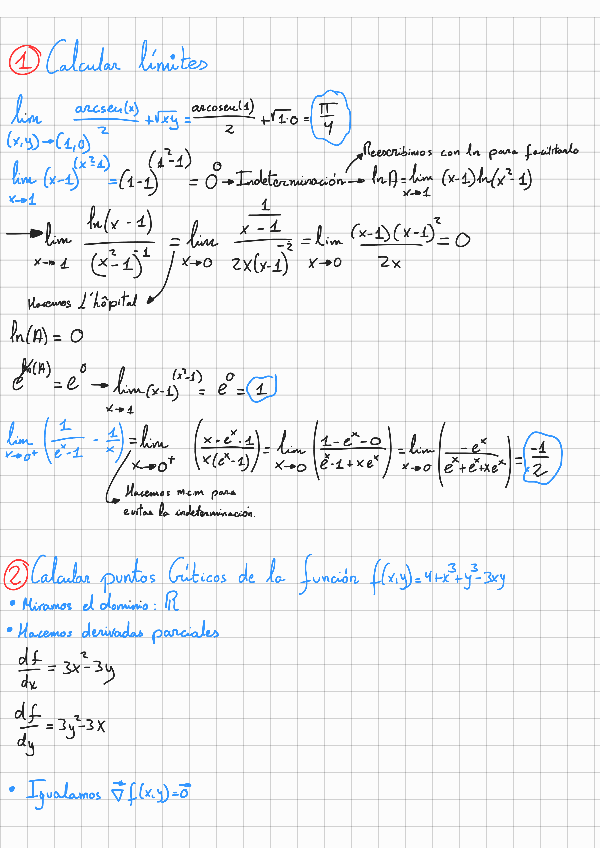 1 Calcular límites
lim (x,y)→(1,0) arcsen(x)/2 + √xy = arcosen(1)/2 + √1·0 = π/4
lim x→1 (x-1)^(x²-1) = (1-1)^(1²-1) = 0⁰ → Indeterminación → ln A = lim x→1 (x-1) ln(x²-1)
Reescribimos con ln para facilitarlo
→ lim x→1 ln(x-1)/(x²-1)^-1 = lim x→0 (1/(x-1))/(2x(x-1)^-2) = lim x→0 (x-1)(x-1)²/2x = 0
Hacemos L'hôpital
ln(A) = 0
e^ln(A) = e⁰ → lim x→1 (x-1)^(x²-1) = e⁰ = 1
lim x→0⁺ (1/(eˣ-1) - 1/x) = lim x→0⁺ (x-eˣ-1)/(x(eˣ-1)) = lim x→0 (1-eˣ-0)/(eˣ-1+xeˣ) = lim x→0 (-eˣ)/(eˣ+eˣ+xeˣ) = -1/2
Hacemos mcm para
evitar la indeterminación.
2 Calcular puntos Críticos de la función f(x,y)=4+x³+y³-3xy
• Miramos el dominio: ℝ
• Hacemos derivadas parciales
df/dx = 3x²-3y
df/dy = 3y²-3x
• Igualamos ∇f(x,y)=0⃗